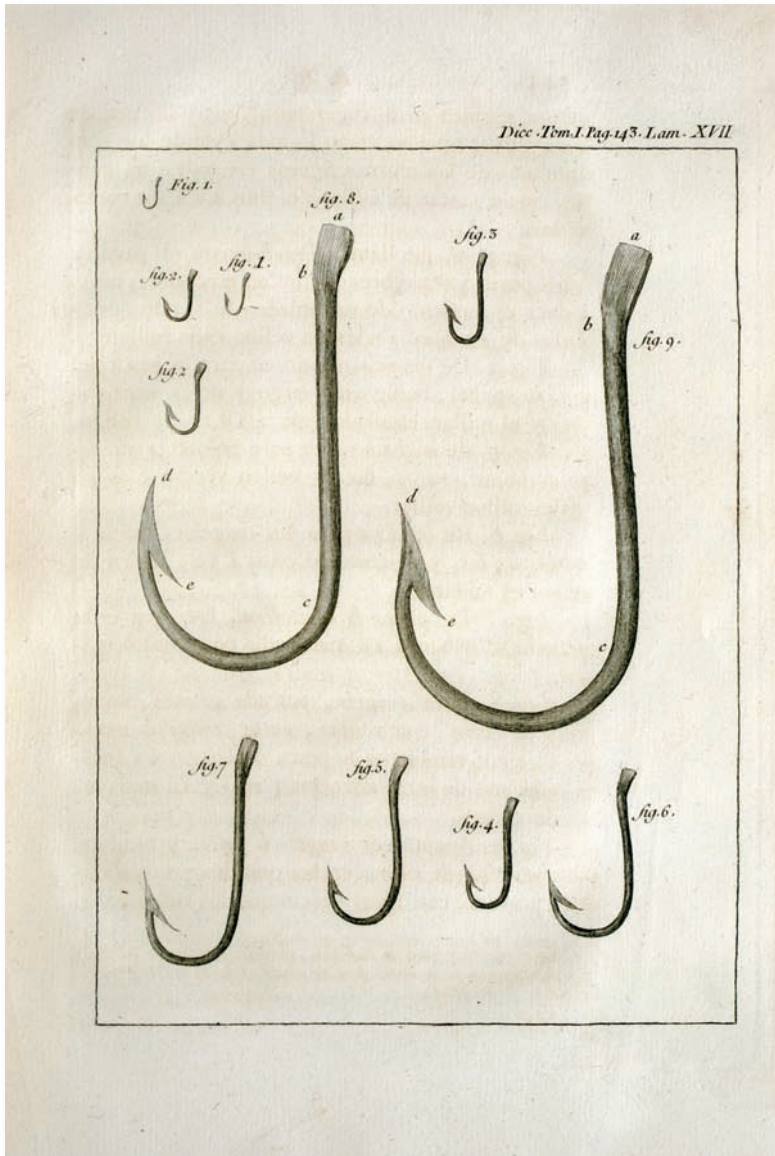 Dicc. Tom. I. Pag. 143. Lam. XVII
Fig. 1.
fig. 8.
a
b
fig. 3
a
b
fig. 9.
fig. 2.
fig. 1.
fig. 2
d
e
c
d
e
c
fig. 7
fig. 5.
fig. 4.
fig. 6.